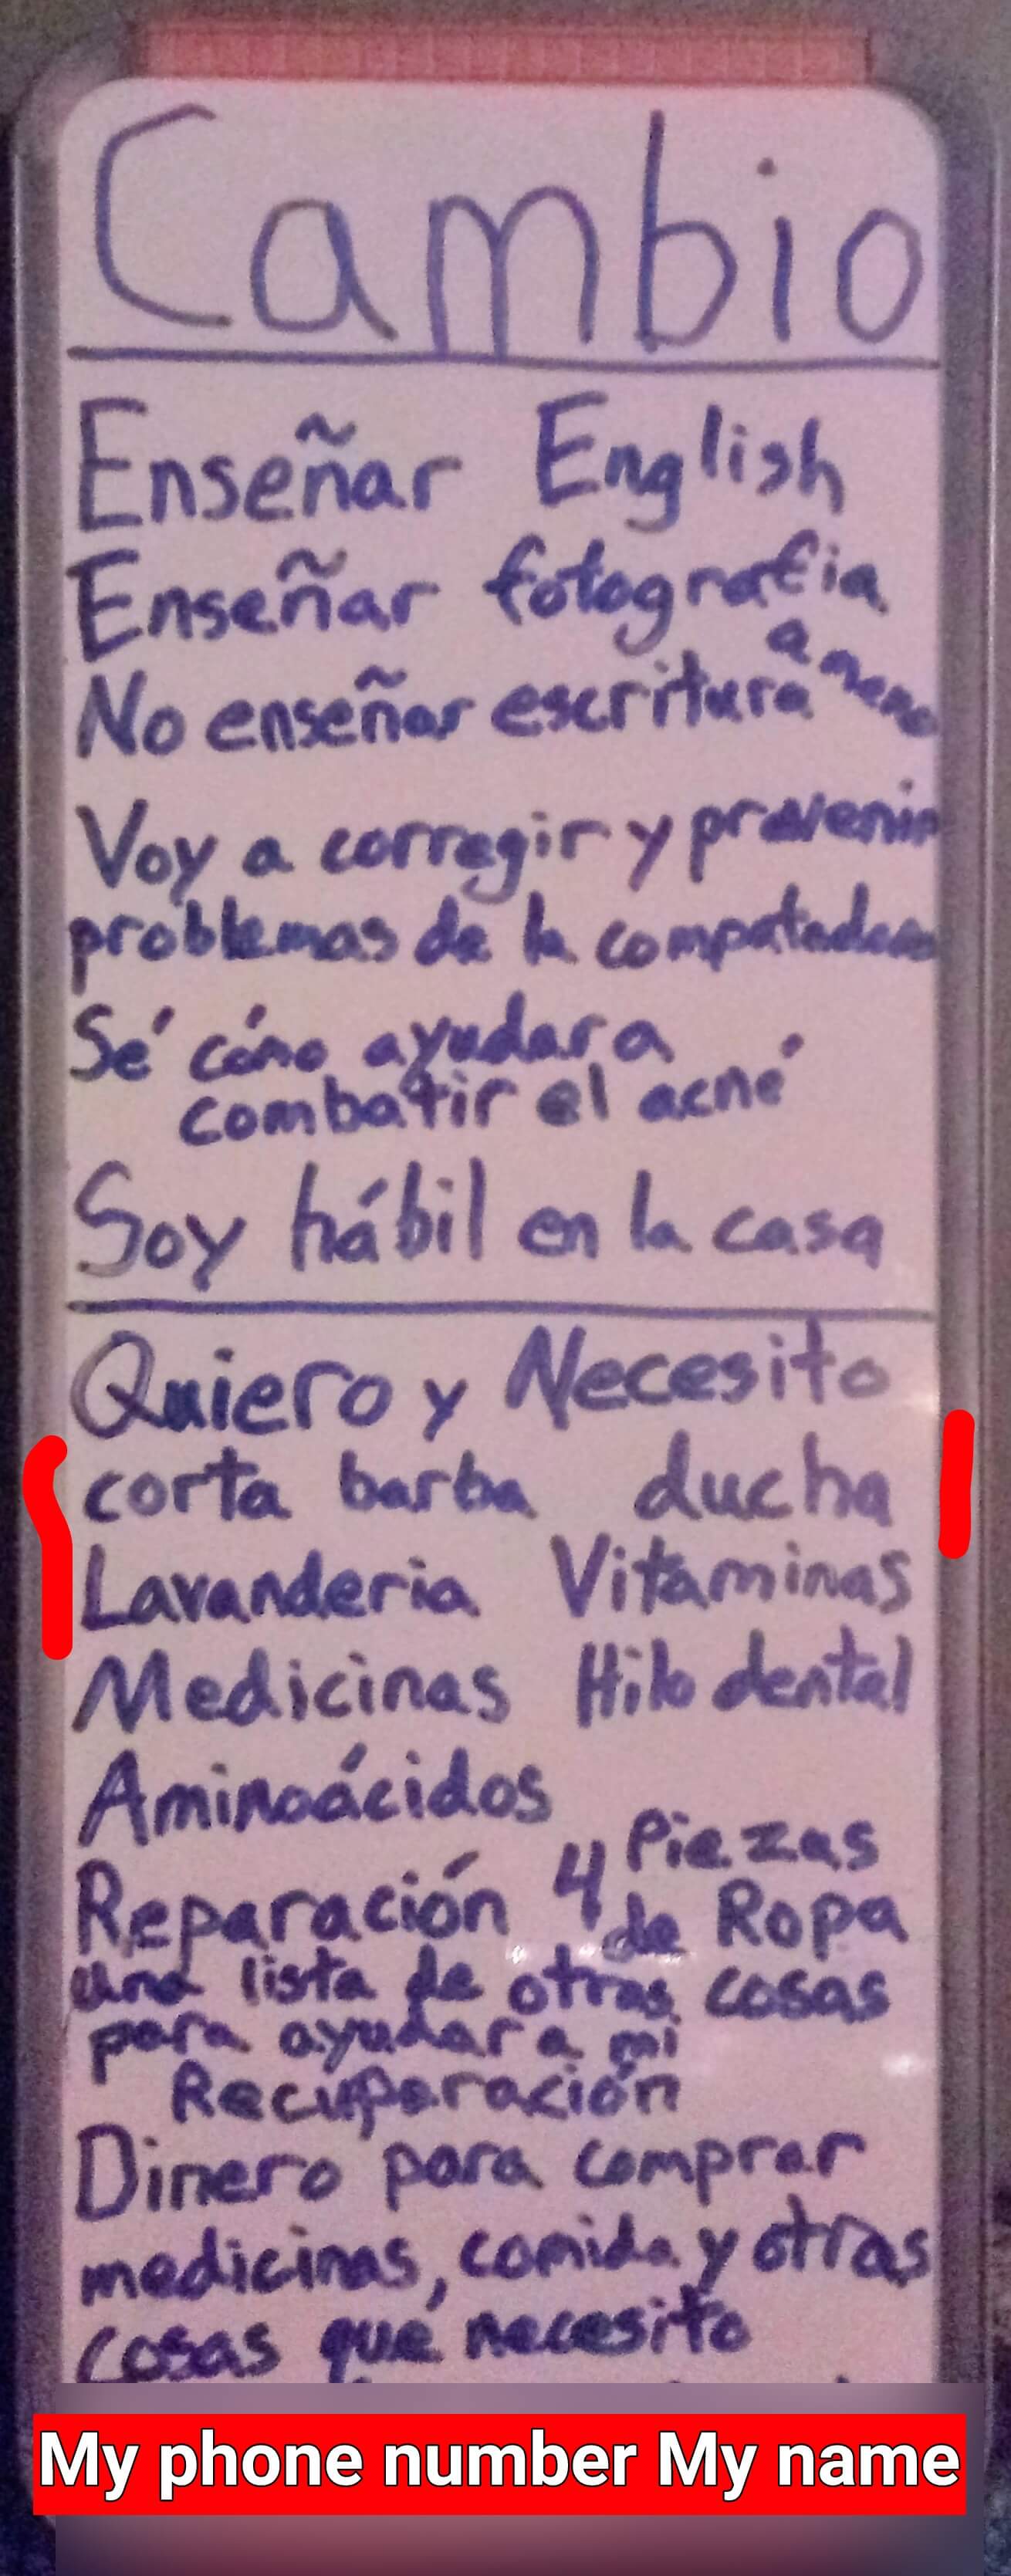 Cambio
Enseñar English
Enseñar fotografia
No enseñar escritura a mano
Voy a corregir y prevenir
problemas de la computadora
Sé cómo ayudar a
combatir el acné
Soy hábil en la casa
Quiero y Necesito
corta barba ducha
Lavanderia Vitaminas
Medicinas Hilo dental
Aminoácidos
Reparación 4 Piezas
de Ropa
una lista de otras cosas
para ayudar a mi
Recuperación
Dinero para comprar
medicinas, comida y otras
cosas qué necesito
My phone number My name